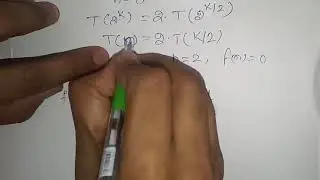 T(2^K) = 2 · T(2^{K/2})
T( ) = 2 · T(K/2)
=2, f(n)=0